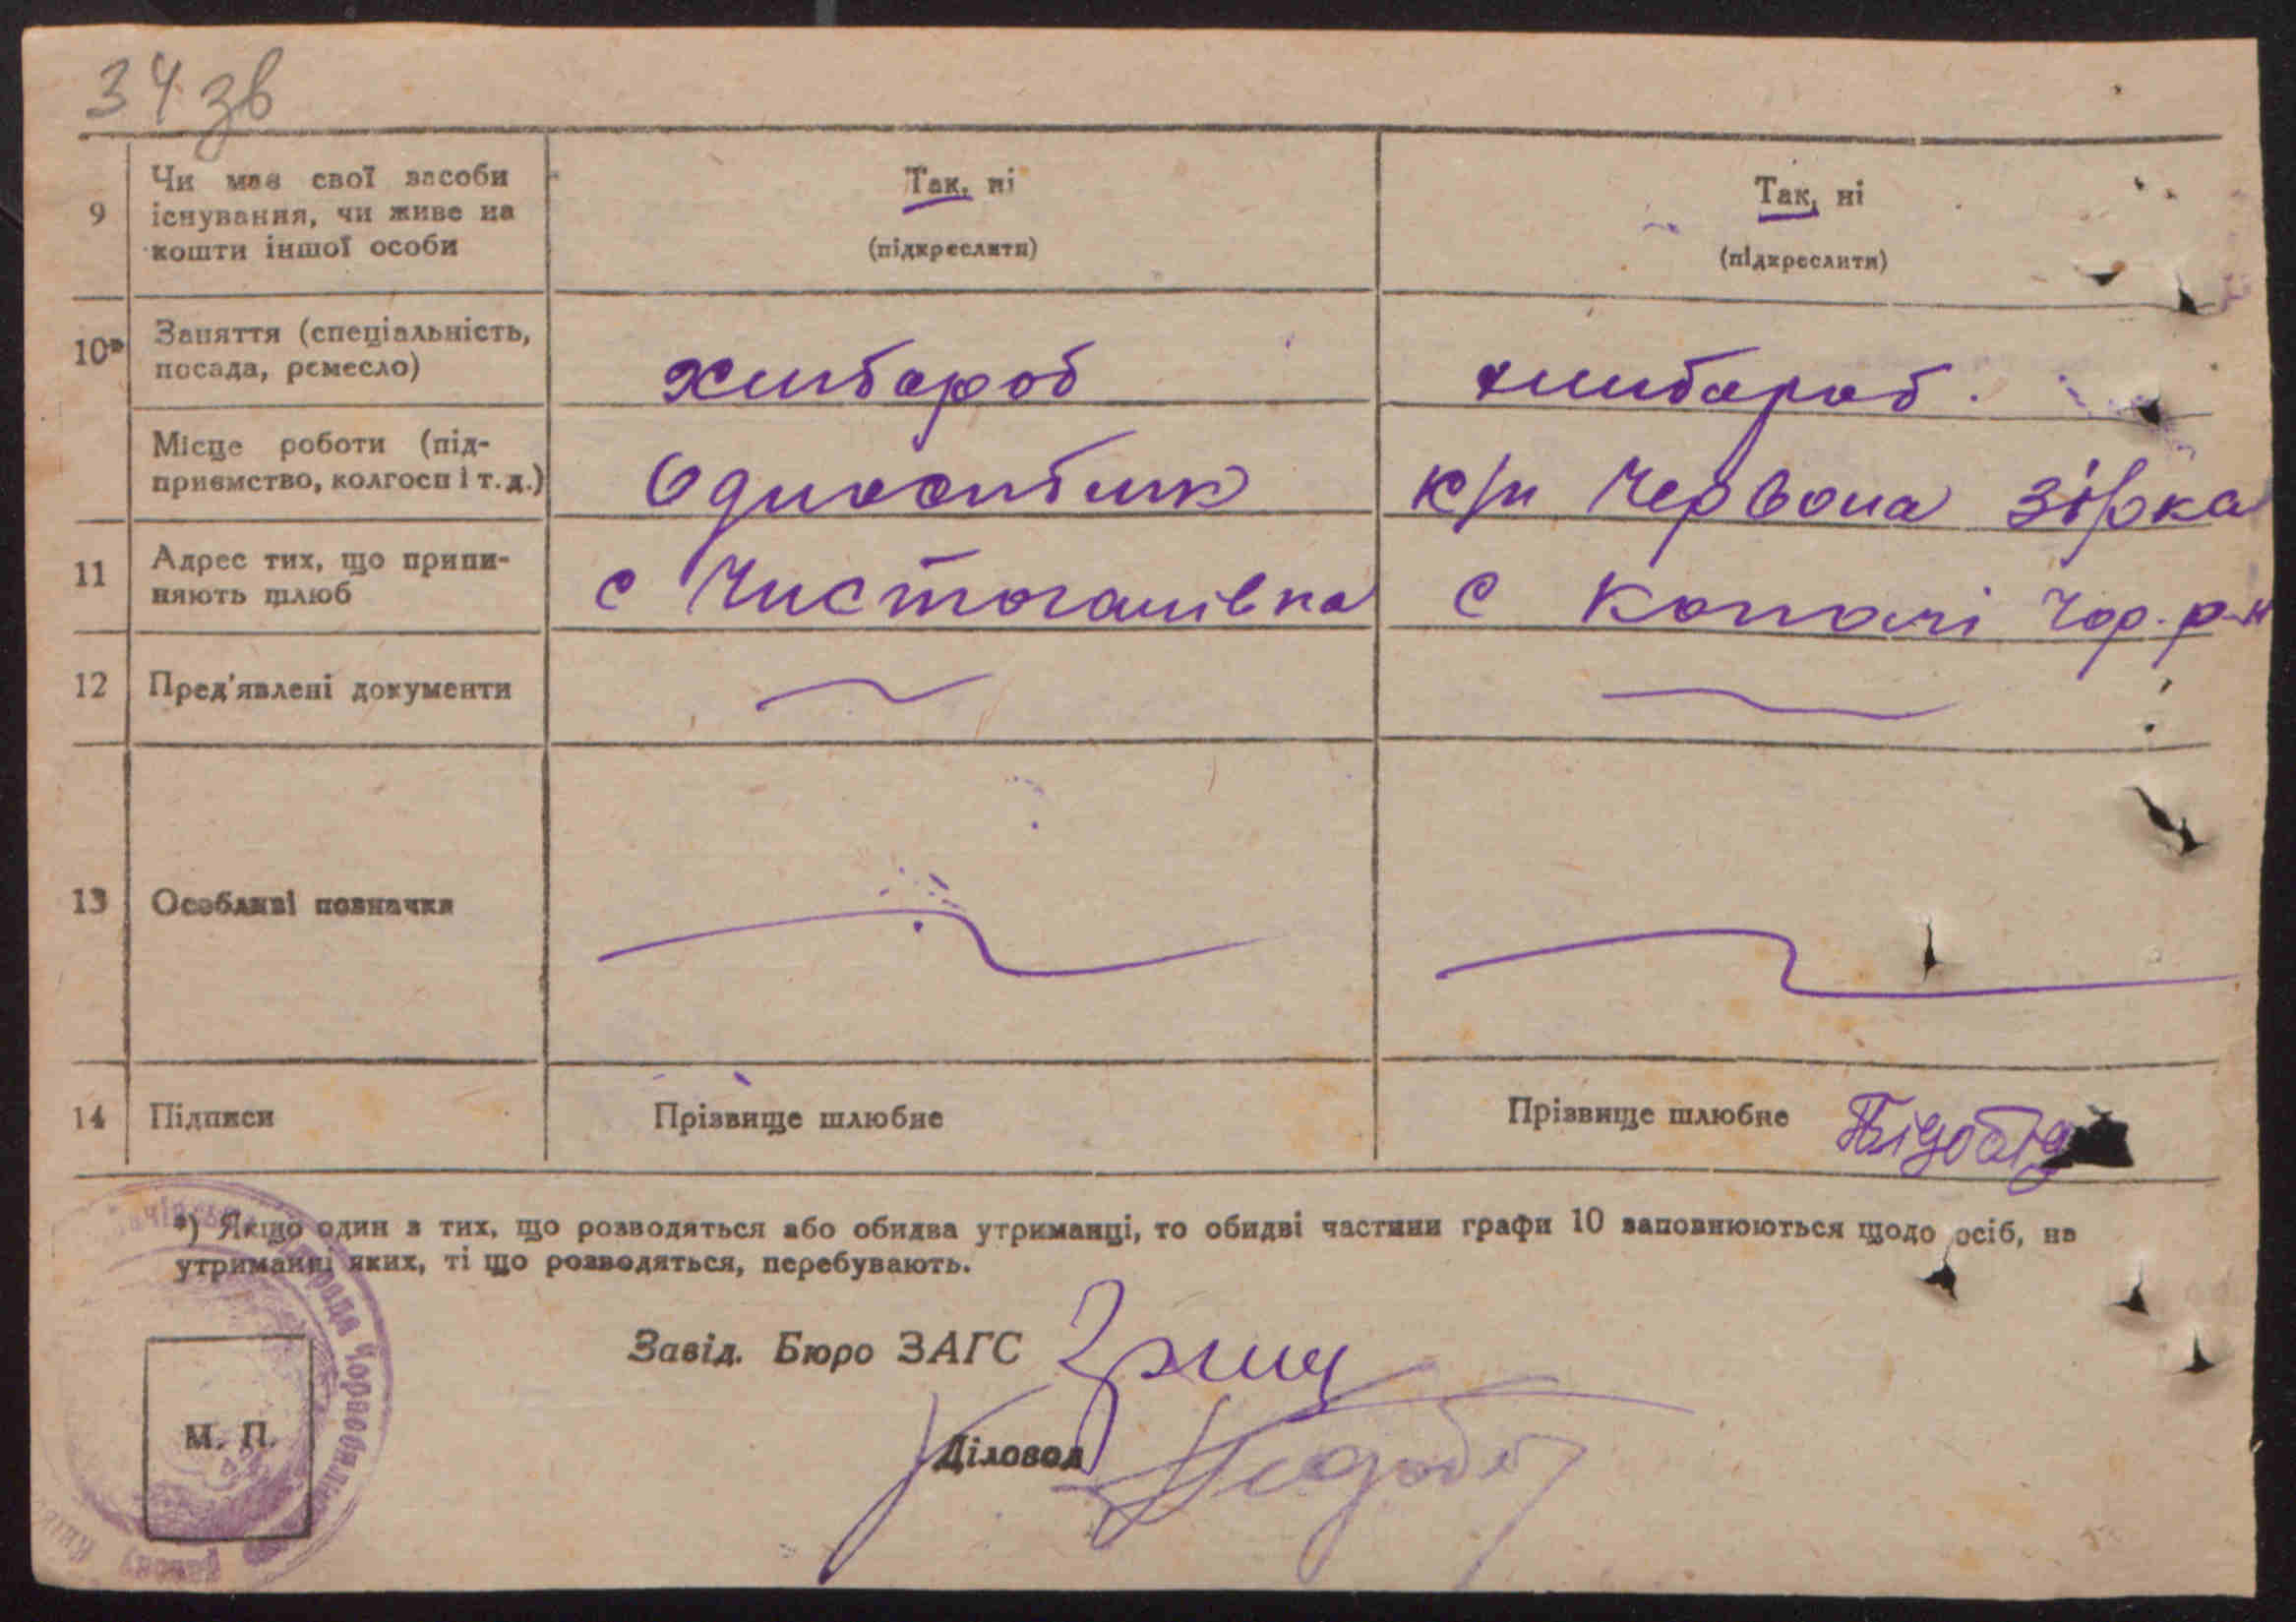 34 зв
9 Чи має свої засоби існування, чи живе на кошти іншої особи
Так, ні
(підкреслити)
Так, ні
(підкреслити)
10*) Заняття (спеціальність, посада, ремесло)
хлібороб
хлібороб.
Місце роботи (підприємство, колгосп і т. д.)
Одноосібник
к/г Червона зірка
11 Адрес тих, що припиняють шлюб
с Чистогалівка
с Копачі Чор. р-н
12 Пред'явлені документи
13 Особливі позначки
14 Підписи
Прізвище шлюбне
Прізвище шлюбне
*) Якщо один з тих, що розводяться або обидва утриманці, то обидві частини графи 10 заповнюються щодо осіб, на
утриманні яких, ті що розводяться, перебувають.
Завід. Бюро ЗАГС
Діловод
М. П.